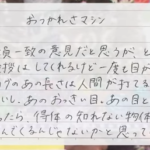 おつかれさマシン
員一致の意見だと思うが、と
挨拶はしてくれるけど一度も目が
けのあの長さは人間が打てる
いし、あのおっきい目、あの目と
ったら、得体の知れない物体
んでくるんじゃないかと思って